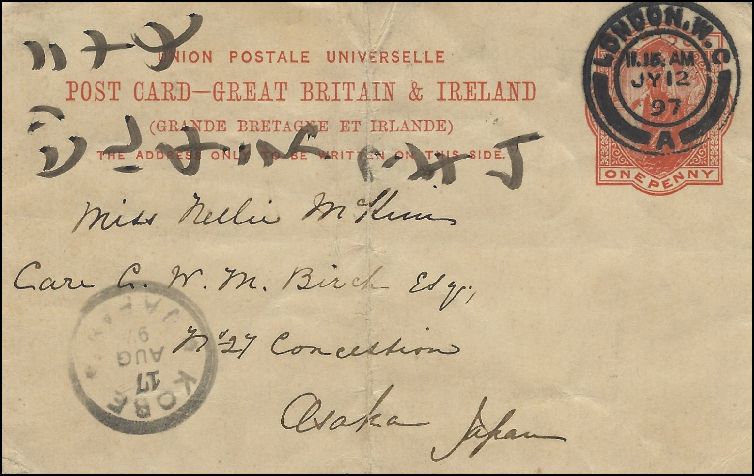 UNION POSTALE UNIVERSELLE
POST CARD—GREAT BRITAIN & IRELAND
(GRANDE BRETAGNE ET IRLANDE)
THE ADDRESS ONLY TO BE WRITTEN ON THIS SIDE.
LONDON.W.C
11.15.AM
JY 12
97
A
ONE PENNY
Miss Nellie McKim
Care W. M. Birch Esq,
No 27 Concession
Osaka Japan
KOBE
17
AUG
97
JAPAN